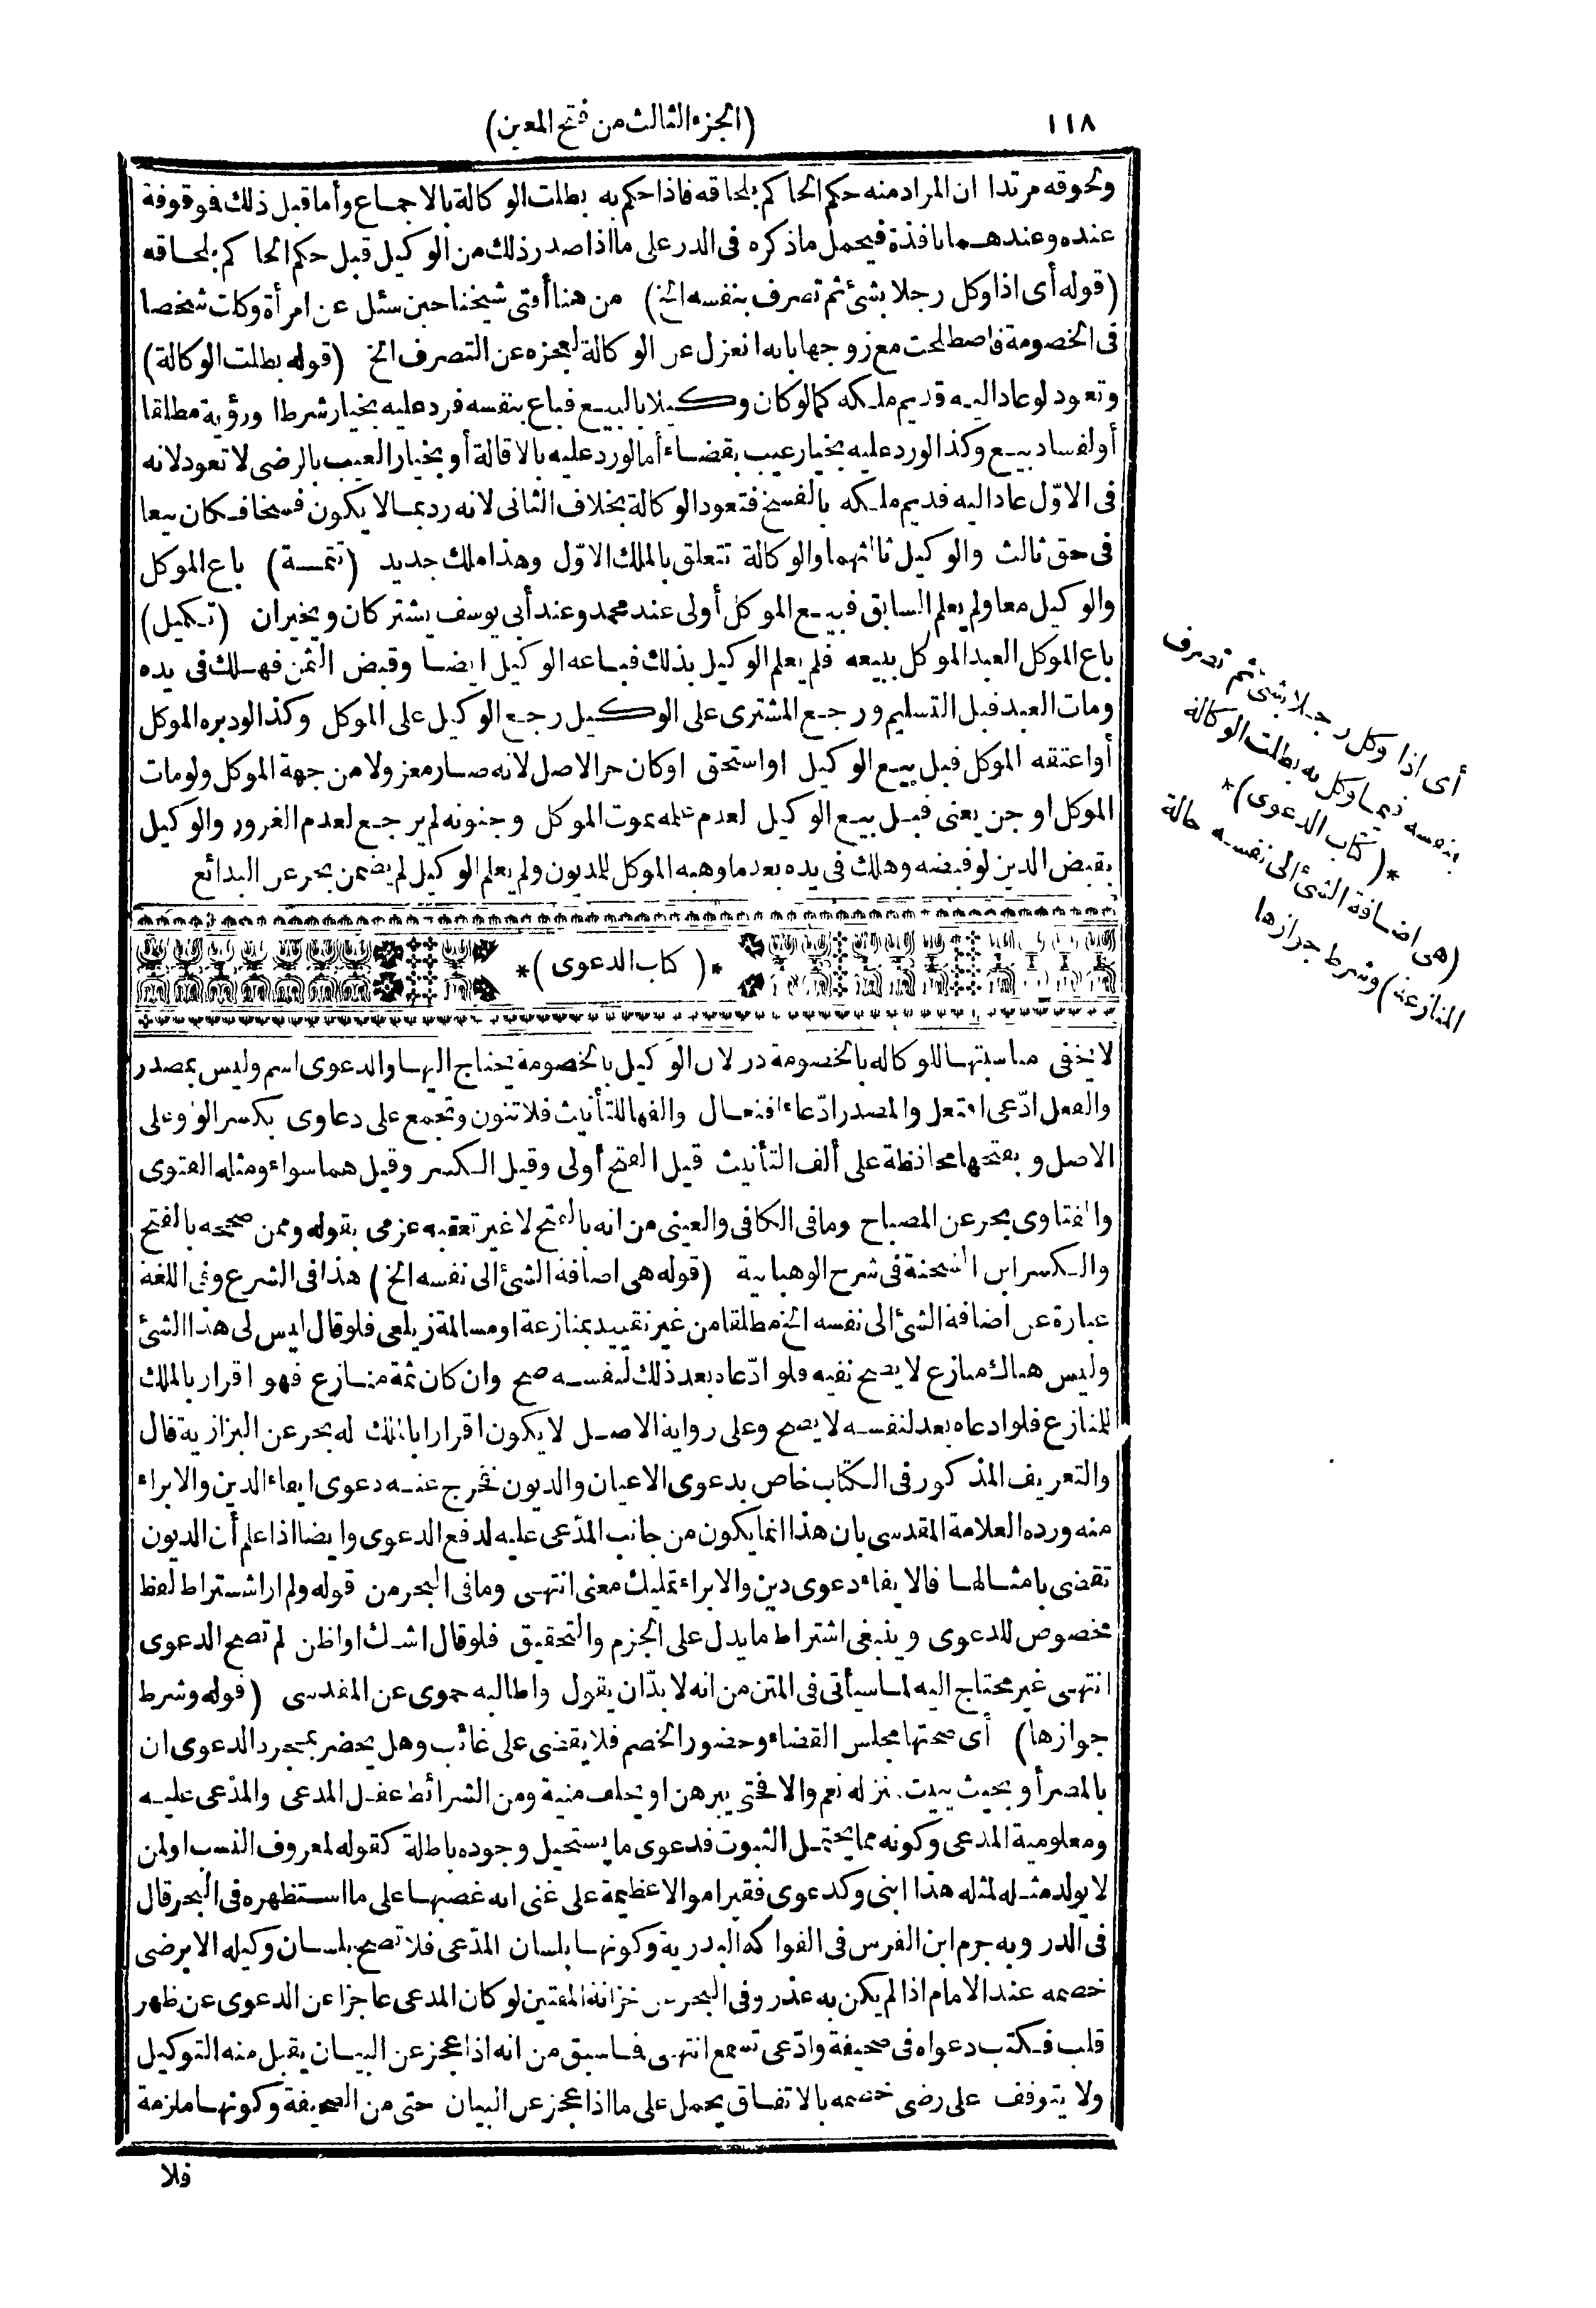 ١١٨
(الجزء الثالث من فتح المعين)
ولحوقه مرتدا ان المراد منه حكم الحاكم بلحاقه فاذا حكم به بطلت الوكالة بالاجماع وأما قبل ذلك فموقوفة
عنده وعندهما نافذة فيحمل ماذكره فى الدر على مااذا صدر ذلك من الوكيل قبل حكم الحاكم بلحاقه
(قوله أى اذا وكل رجلا بشئ ثم تصرف بنفسه الخ) من هنا أفتى شيخنا حين سئل عن امرأة وكلت شخصا
فى الخصومة فاصطلحت مع زوجها بانه انعزل عن الوكالة لعجزه عن التصرف الخ (قوله بطلت الوكالة)
وتعود لو عاد اليه قديم ملكه كمالو كان وكيلا بالبيع فباع بنفسه فرد عليه بخيار شرط او رؤية مطلقا
أو لفساد بيع وكذا لو رد عليه بخيار عيب بقضاء أما لو رد عليه بالاقالة أو بخيار العيب بالرضى لا تعود لانه
فى الاوّل عاد اليه قديم ملكه بالفسخ فتعود الوكالة بخلاف الثانى لانه رد بما لا يكون فسخا فكان بيعا
فى حق ثالث والوكيل ثالثهما والوكالة تتعلق بالملك الاوّل وهذا ملك جديد (تتمة) باع الموكل
والوكيل معا ولم يعلم السابق فبيع الموكل أولى عند محمد وعند أبى يوسف يشتركان ويخيران (تكميل)
باع الموكل العبد الموكل ببيعه فلم يعلم الوكيل بذلك فباعه الوكيل ايضا وقبض الثمن فهلك فى يده
ومات العبد قبل التسليم ورجع المشترى على الوكيل رجع الوكيل على الموكل وكذا لو دبره الموكل
أو اعتقه الموكل قبل بيع الوكيل او استحق او كان حر الاصل لانه صار مغرولا من جهة الموكل ولو مات
الموكل او جن يعنى قبل بيع الوكيل لعدم علمه بموت الموكل وجنونه لم يرجع لعدم الغرور والوكيل
بقبض الدين لو قبضه وهلك فى يده بعد ما وهبه الموكل للمديون ولم يعلم الوكيل لم يضمن بحر عن البدائع
*(كتاب الدعوى)*
لا يخفى مناسبتها للوكاله بالخصومة درلان الوكيل بالخصومة يحتاج اليها والدعوى اسم وليس بمصدر
والفعل ادّعى افتعل والمصدر ادّعاء افتعال والفها للتأنيث فلا تنون وتجمع على دعاوى بكسر الواو على
الاصل وبفتحها محافظة على ألف التأنيث قيل الفتح أولى وقيل الكسر وقيل هما سواء ومثله الفتوى
والفتاوى بحر عن المصباح ومافى الكافى والعينى من انه بالفتح لا غير تعقبه عزمى بقوله وممن صححه بالفتح
والكسر ابن الشحنة فى شرح الوهبانية (قوله هى اضافة الشئ الى نفسه الخ) هذا فى الشرع وفى اللغة
عبارة عن اضافة الشئ الى نفسه الخ مطلقا من غير تقييد بمنازعة او مسالمة زيلعى فلو قال ليس لى هذا الشئ
وليس هناك منازع لا يصح نفيه فلو ادّعاه بعد ذلك لنفسه صح وان كان ثمة منازع فهو اقرار بالملك
للمنازع فلو ادعاه بعد لنفسه لا يصح وعلى رواية الاصل لا يكون اقرارا بالملك له بحر عن البزازية قال
والتعريف المذكور فى الكتاب خاص بدعوى الاعيان والديون فخرج عنه دعوى ايفاء الدين والابراء
منه ورده العلامة المقدسى بان هذا انما يكون من جانب المدّعى عليه لدفع الدعوى وايضا اذا علم أن الديون
تقضى بامثالها فالايفاء دعوى دين والابراء تمليك معنى انتهى ومافى البحر من قوله ولم ار اشتراط لفظ
مخصوص للدعوى وينبغى اشتراط مايدل على الجزم والتحقيق فلو قال اشك او اظن لم تصح الدعوى
انتهى غير محتاج اليه لما سيأتى فى المتن من انه لا بدّ ان يقول واطالبه حموى عن المقدسى (قوله وشرط
جوازها) أى صحتها مجلس القضاء وحضور الخصم فلا يقضى على غائب وهل يحضر بمجرد الدعوى ان
بالمصر أو بحيث يبيت بمنزله نعم والا فحتى يبرهن او يحلف منية ومن الشرائط عقل المدعى والمدّعى عليه
ومعلومية المدعى وكونه مما يحتمل الثبوت فدعوى ما يستحيل وجوده باطلة كقوله لمعروف النسب او لمن
لا يولد مثله لمثله هذا ابنى وكدعوى فقير اموالا عظيمة على غنى انه غصبها على مااستظهره فى البحر قال
فى الدر وبه جزم ابن الغرس فى الفواكه البدرية وكونها بلسان المدّعى فلا تصح بلسان وكيله الا برضى
خصمه عند الامام اذا لم يكن به عذر وفى البحر عن خزانة المفتين لو كان المدعى عاجزا عن الدعوى عن ظهر
قلب فكتب دعواه فى صحيفة وادّعى تسمع انتهى فما سبق من انه اذا عجز عن البيان يقبل منه التوكيل
ولا يتوقف على رضى خصمه بالاتفاق يحمل على مااذا عجز عن البيان حتى من الصحيفة وكونها ملزمة
فلا
أى اذا وكل رجلا بشئ ثم تصرف
بنفسه فيما وكل به بطلت الوكالة
*(كتاب الدعوى)*
(هى اضافة الشئ الى نفسه حالة
المنازعة) وشرط جوازها